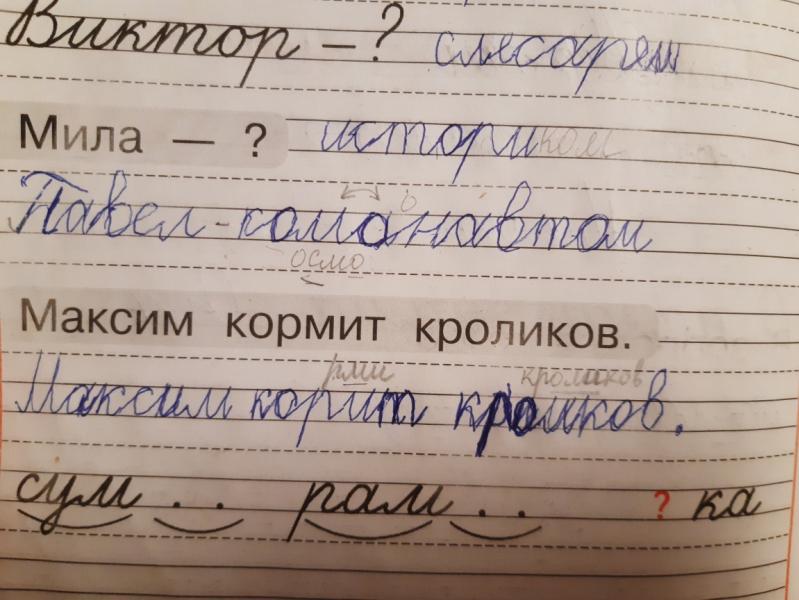 Виктор – ? слесарем
Мила — ? историком
Павел - команавтом
осмо
Максим кормит кроликов.
рми кроликов
Максим корит кроиков.
сум . . рам . . ? ка